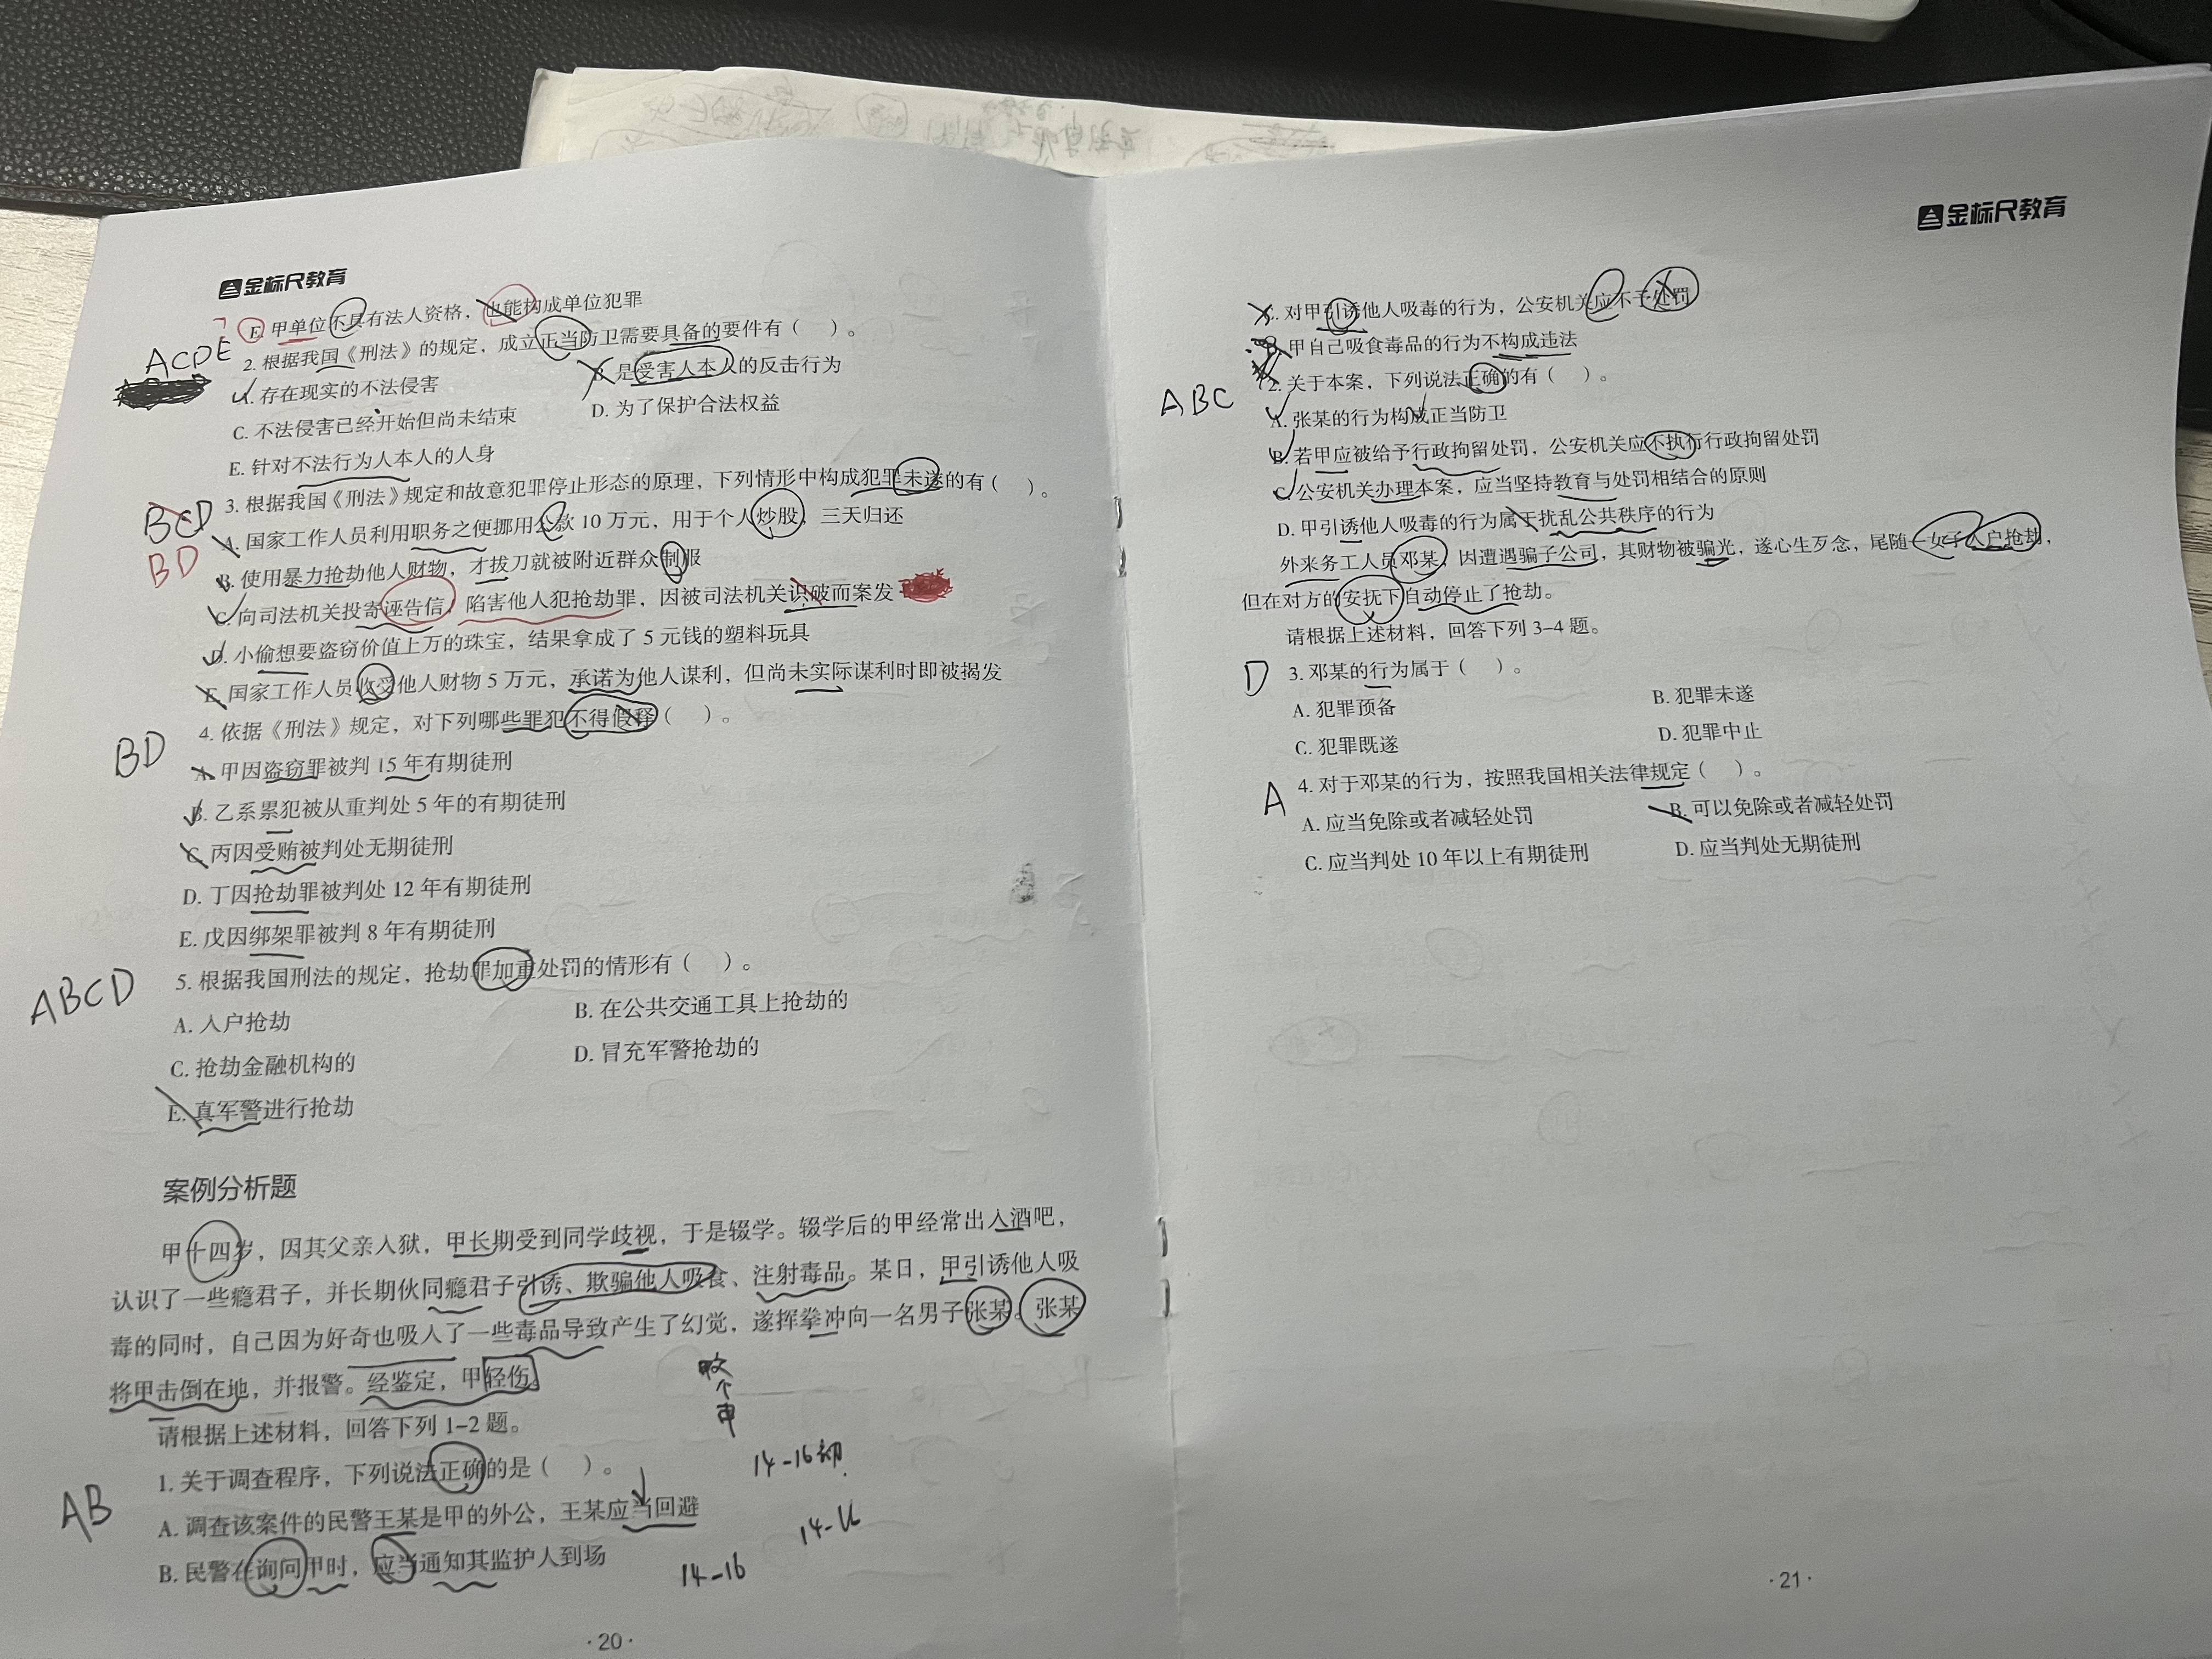 金标尺教育
E. 甲单位不具有法人资格，也能构成单位犯罪
ACDE
2. 根据我国《刑法》的规定，成立正当防卫需要具备的要件有（ ）。
A. 存在现实的不法侵害
B. 是受害人本人的反击行为
C. 不法侵害已经开始但尚未结束
D. 为了保护合法权益
E. 针对不法行为人本人的人身
BCD
BD
3. 根据我国《刑法》规定和故意犯罪停止形态的原理，下列情形中构成犯罪未遂的有（ ）。
A. 国家工作人员利用职务之便挪用公款 10 万元，用于个人炒股，三天归还
B. 使用暴力抢劫他人财物，才拔刀就被附近群众制服
C. 向司法机关投寄诬告信，陷害他人犯抢劫罪，因被司法机关识破而案发
D. 小偷想要盗窃价值上万的珠宝，结果拿成了 5 元钱的塑料玩具
E. 国家工作人员收受他人财物 5 万元，承诺为他人谋利，但尚未实际谋利时即被揭发
BD
4. 依据《刑法》规定，对下列哪些罪犯不得假释（ ）。
A. 甲因盗窃罪被判 15 年有期徒刑
B. 乙系累犯被从重判处 5 年的有期徒刑
C. 丙因受贿被判处无期徒刑
D. 丁因抢劫罪被判处 12 年有期徒刑
E. 戊因绑架罪被判 8 年有期徒刑
ABCD
5. 根据我国刑法的规定，抢劫罪加重处罚的情形有（ ）。
A. 入户抢劫
B. 在公共交通工具上抢劫的
C. 抢劫金融机构的
D. 冒充军警抢劫的
E. 真军警进行抢劫
案例分析题
甲十四岁，因其父亲入狱，甲长期受到同学歧视，于是辍学。辍学后的甲经常出入酒吧，
认识了一些瘾君子，并长期伙同瘾君子引诱、欺骗他人吸食、注射毒品。某日，甲引诱他人吸
毒的同时，自己因为好奇也吸入了一些毒品导致产生了幻觉，遂挥拳冲向一名男子张某。张某
将甲击倒在地，并报警。经鉴定，甲轻伤。
请根据上述材料，回答下列 1-2 题。
AB
1. 关于调查程序，下列说法正确的是（ ）。
A. 调查该案件的民警王某是甲的外公，王某应当回避
B. 民警在询问甲时，应当通知其监护人到场
14-16初
14-16
14-16
·20·
金标尺教育
C. 对甲引诱他人吸毒的行为，公安机关应不予处罚
D. 甲自己吸食毒品的行为不构成违法
ABC
2. 关于本案，下列说法正确的有（ ）。
A. 张某的行为构成正当防卫
B. 若甲应被给予行政拘留处罚，公安机关应不执行行政拘留处罚
C. 公安机关办理本案，应当坚持教育与处罚相结合的原则
D. 甲引诱他人吸毒的行为属于扰乱公共秩序的行为
外来务工人员邓某，因遭遇骗子公司，其财物被骗光，遂心生歹念，尾随一女子入户抢劫，
但在对方的安抚下自动停止了抢劫。
请根据上述材料，回答下列 3-4 题。
D
3. 邓某的行为属于（ ）。
A. 犯罪预备
B. 犯罪未遂
C. 犯罪既遂
D. 犯罪中止
A
4. 对于邓某的行为，按照我国相关法律规定（ ）。
A. 应当免除或者减轻处罚
B. 可以免除或者减轻处罚
C. 应当判处 10 年以上有期徒刑
D. 应当判处无期徒刑
·21·